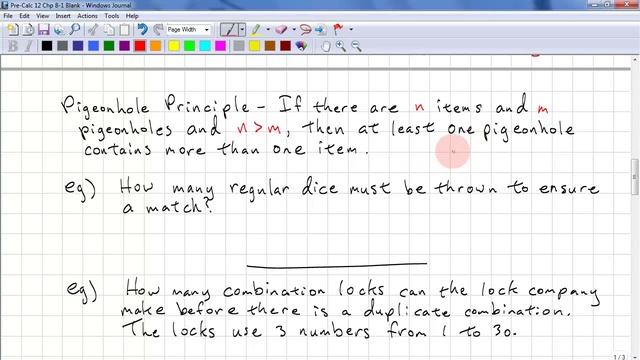 Pre-Calc 12 Chp 8-1 Blank - Windows Journal
File Edit View Insert Actions Tools Help
Page Width
Pigeonhole Principle - If there are n items and m
pigeonholes and n>m, then at least one pigeonhole
contains more than one item.
eg) How many regular dice must be thrown to ensure
a match?
eg) How many combination locks can the lock company
make before there is a duplicate combination.
The locks use 3 numbers from 1 to 30.
1 / 3